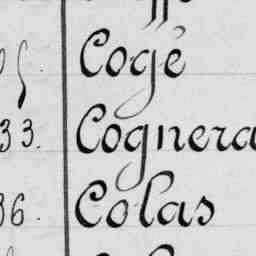 Cogé
33. Cognera
36. Colas